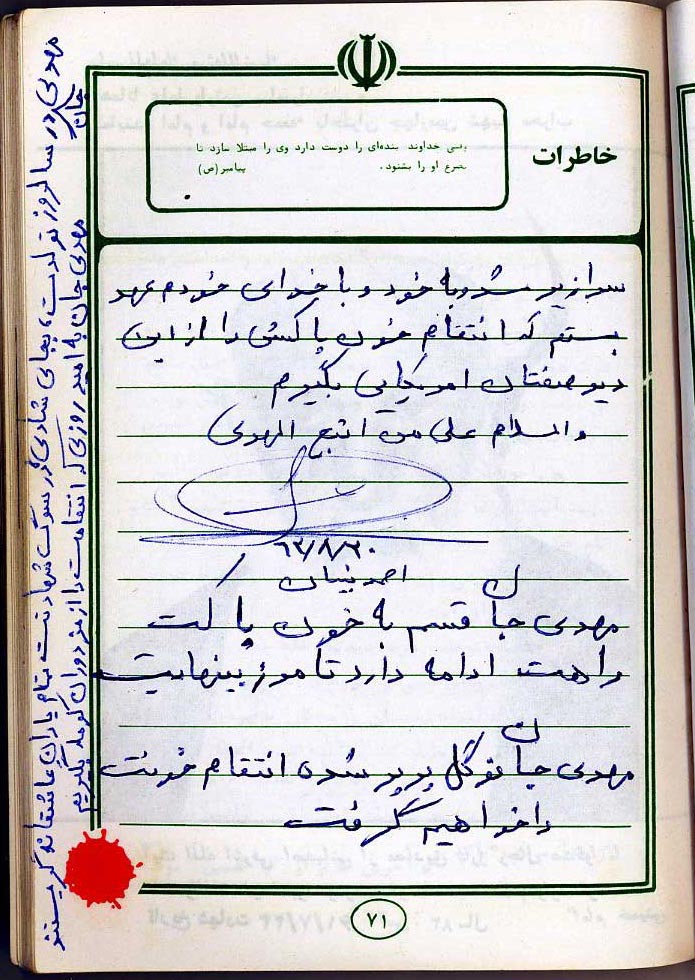 خاطرات
وقتی خداوند بنده‌ای را دوست دارد وی را مبتلا سازد تا
تضرع او را بشنود. پیامبر (ص)
سرازیر شد و با خود و با خدای خودم عهد
بستم که انتقام خون پاکش را از این
دیو صفتان امریکایی بگیرم
والسلام علی من اتبع الهدی
۶۳/۸/۲۰
احمد بنیان
مهدی جان قسم به خون پاکت
راهت ادامه دارد تا مرز بینهایت
مهدی جان تو گل پرپر شده انتقام خونت
را خواهیم گرفت
۷۱
مهدی جان در سالروز تولدت، بجای شادی در سوگ شهادتت تمام یاران عاشقانه گریستند
مهدی جان به امید روزی که انتقامت را از مزدوران کومله بگیریم